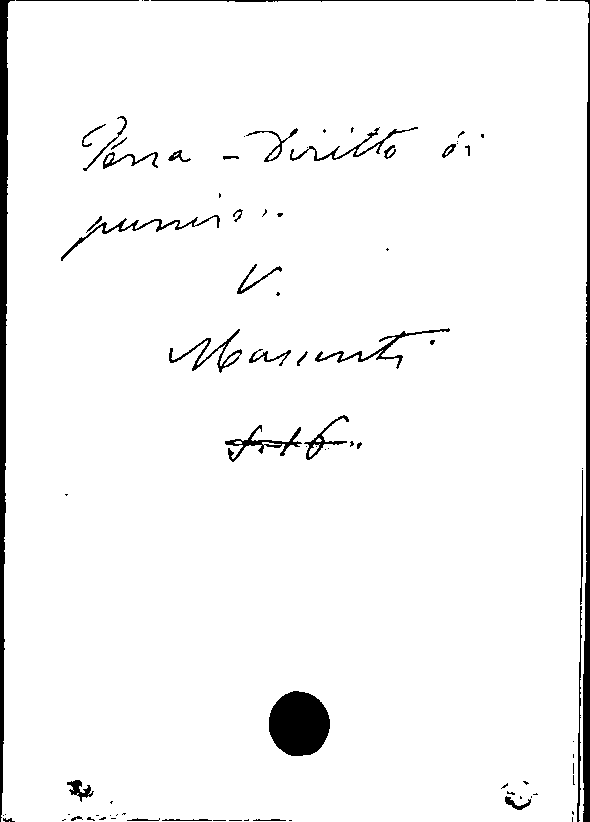 Pena - Diritto di
punire..
V.
Massenti